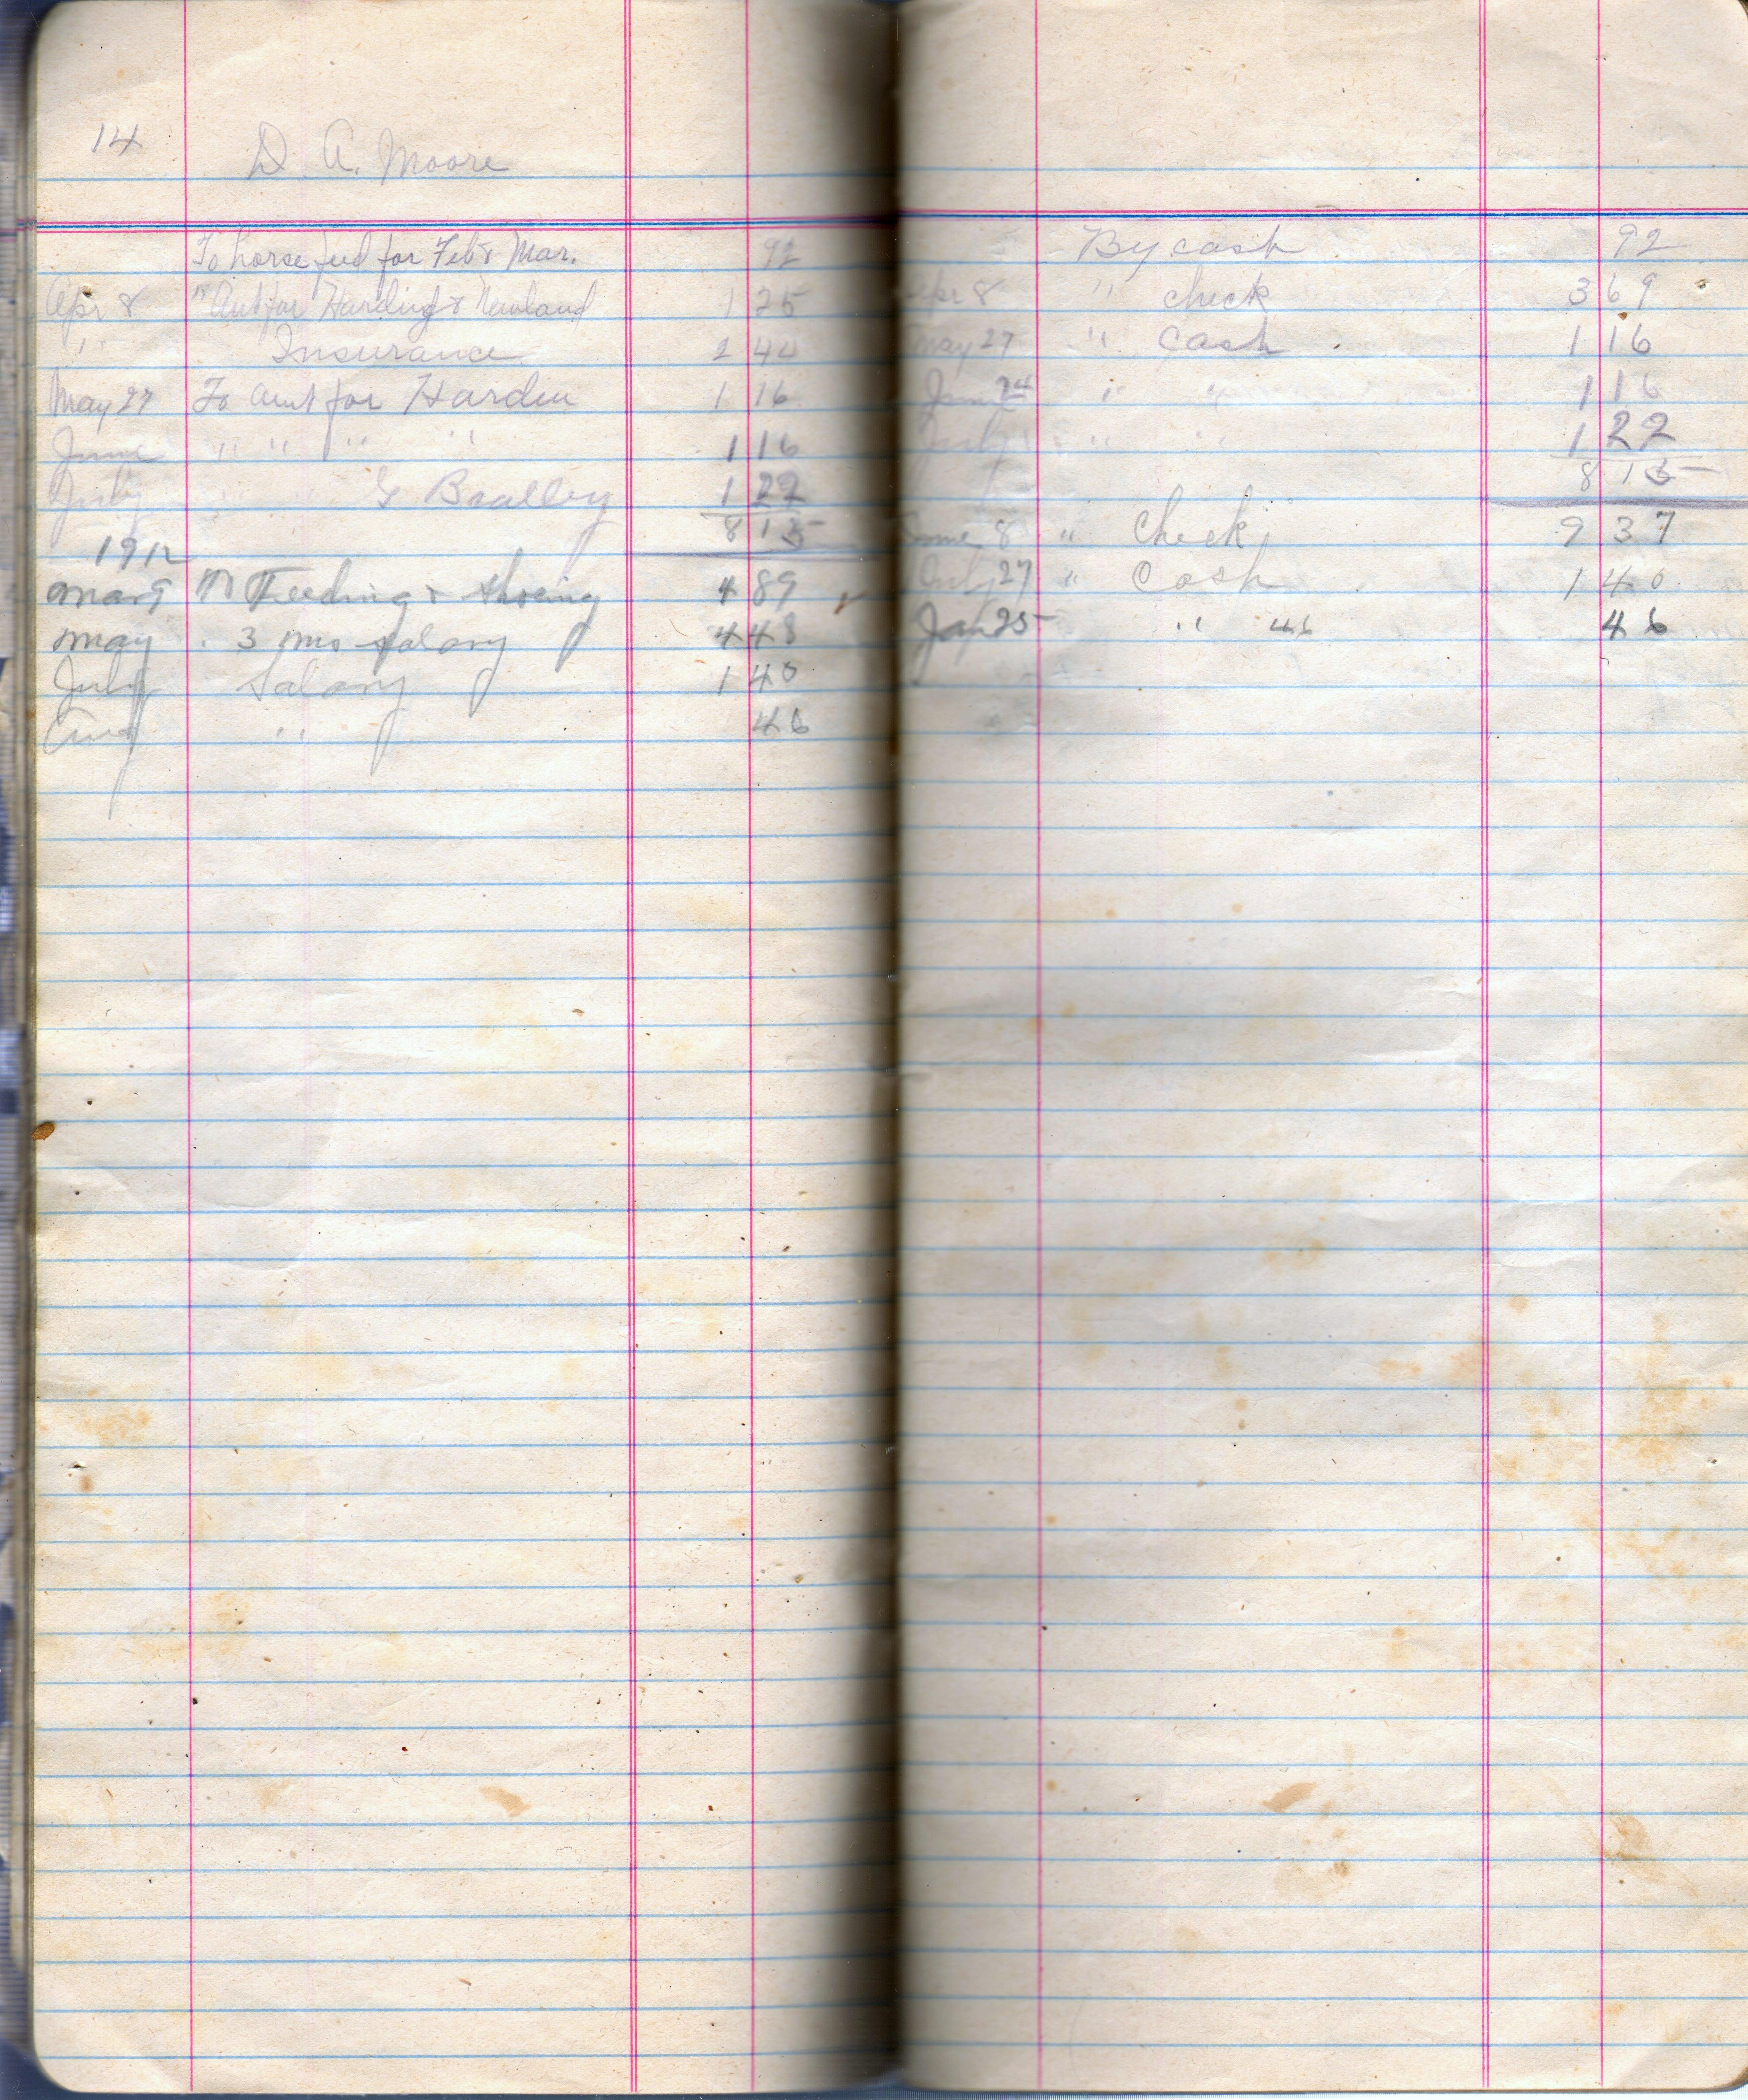 14 D. A. Moore
To horse feed for Feb & Mar. 92
Apr 8 " Amt for Harding & Newland 1 25
" Insurance 2 44
May 27 To Amt for Hardin 1 16
June " " " " 1 16
July " " G Bralley 1 22
8 15
1912
Mar 9 Feeding & shoeing 4 89
May . 3 mo salary 4 48
July Salary 1 40
Aug " 46
By cash 92
Apr 8 " check 3 69
May 27 " Cash 1 16
June 24 " " 1 16
July " " 1 22
8 15
June 8 " Check 9 37
July 27 " Cash 1 40
Jan 25 " " 46